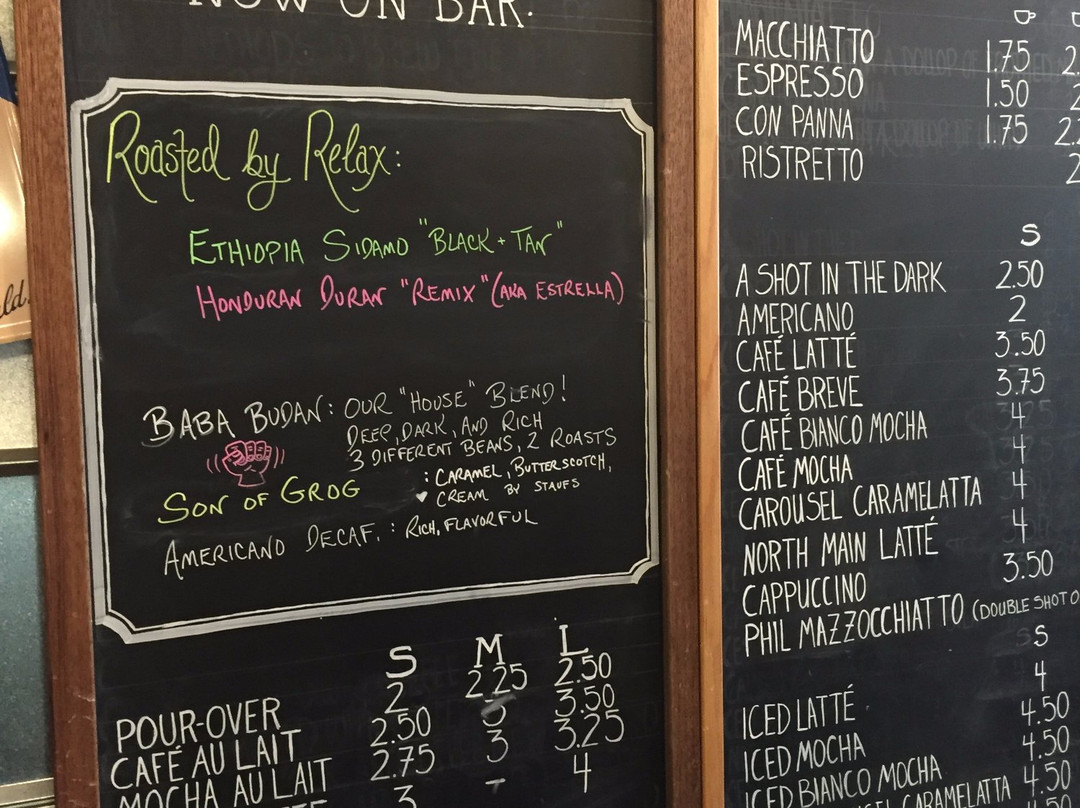 NOW ON BAR:
Roasted by Relax:
ETHIOPIA SIDAMO "BLACK + TAN"
HONDURAN DURAN "REMIX" (AKA ESTRELLA)
BABA BUDAN: OUR "HOUSE" BLEND!
DEEP, DARK, AND RICH
3 DIFFERENT BEANS, 2 ROASTS
SON OF GROG : CARAMEL, BUTTERSCOTCH,
♥ CREAM BY STAUFS
AMERICANO DECAF. : RICH, FLAVORFUL
S M L
POUR-OVER 2 2.25 2.50
CAFÉ AU LAIT 2.50 3 3.50
MOCHA AU LAIT 2.75 3 3.25
3 - 4
MACCHIATTO 1.75 2.
ESPRESSO 1.50 2
CON PANNA 1.75 2.2
RISTRETTO 2
S
A SHOT IN THE DARK 2.50
AMERICANO 2
CAFÉ LATTÉ 3.50
CAFÉ BREVE 3.75
CAFÉ BIANCO MOCHA 4
CAFÉ MOCHA 4
CAROUSEL CARAMELATTA 4
NORTH MAIN LATTÉ 4
CAPPUCCINO 3.50
PHIL MAZZOCCHIATTO (DOUBLE SHOT O
S
ICED LATTÉ 4
ICED MOCHA 4.50
ICED BIANCO MOCHA 4.50
CARAMELATTA 4.50